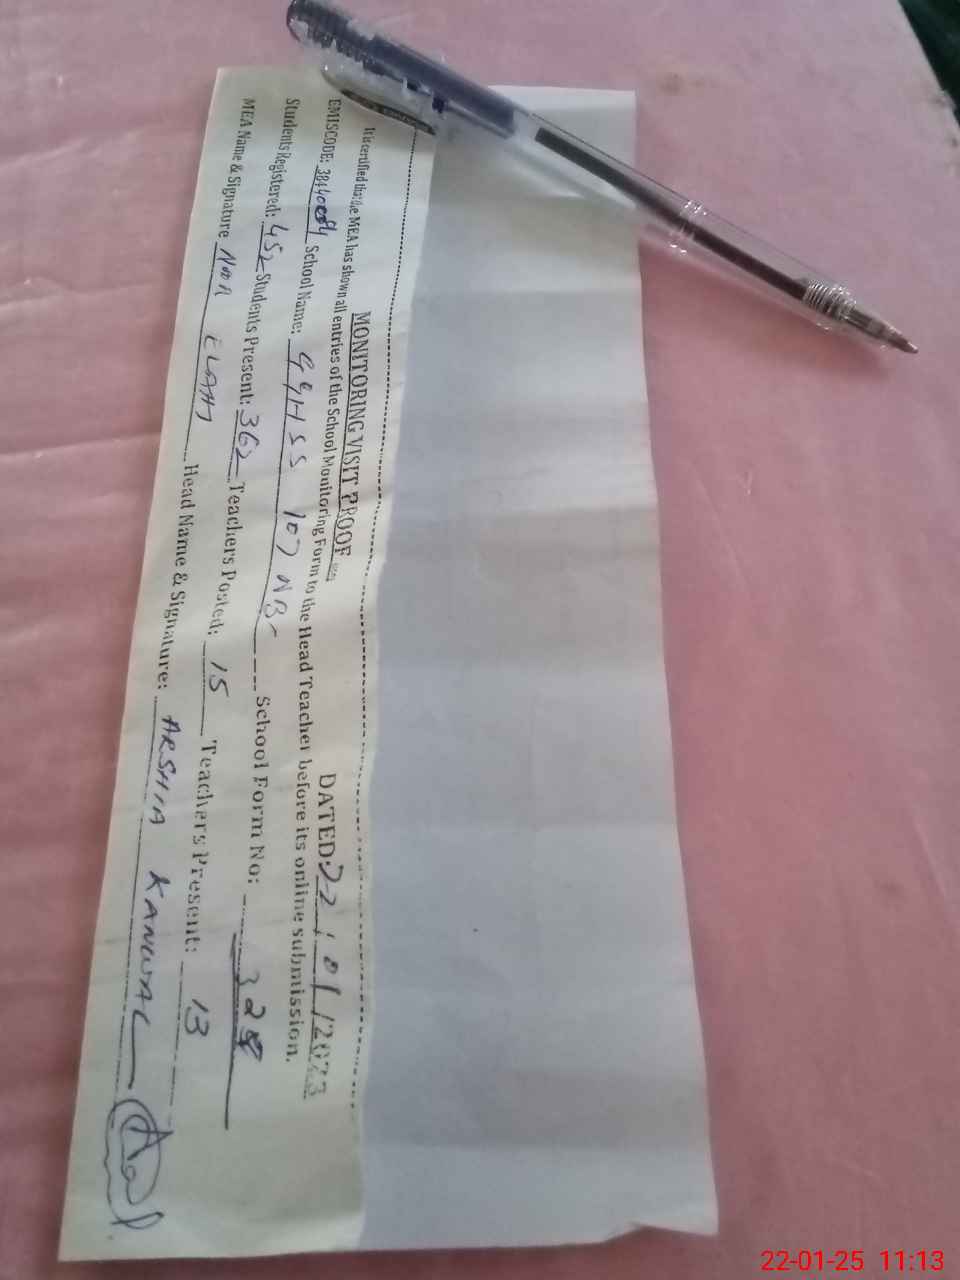 MONITORING VISIT PROOF DATED: 22/01/2023
It is certified that the MEA has shown all entries of the School Monitoring Form to the Head Teacher before its online submission.
EMISCODE: School Name: GGHSS 107 NB School Form No: 328
Students Registered: 452 Students Present: 362 Teachers Posted: 15 Teachers Present: 13
MEA Name & Signature NOOR ELAHI Head Name & Signature: ARSHIA KANWAL
22-01-25 11:13